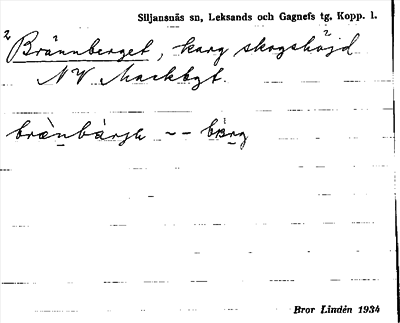 Siljansnäs sn, Leksands och Gagnefs tg, Kopp. l.
2 Brännberget, karg skogshöjd
NV Mackbyt.
brä̀nbärjḷ -- bärg
Bror Lindén 1934